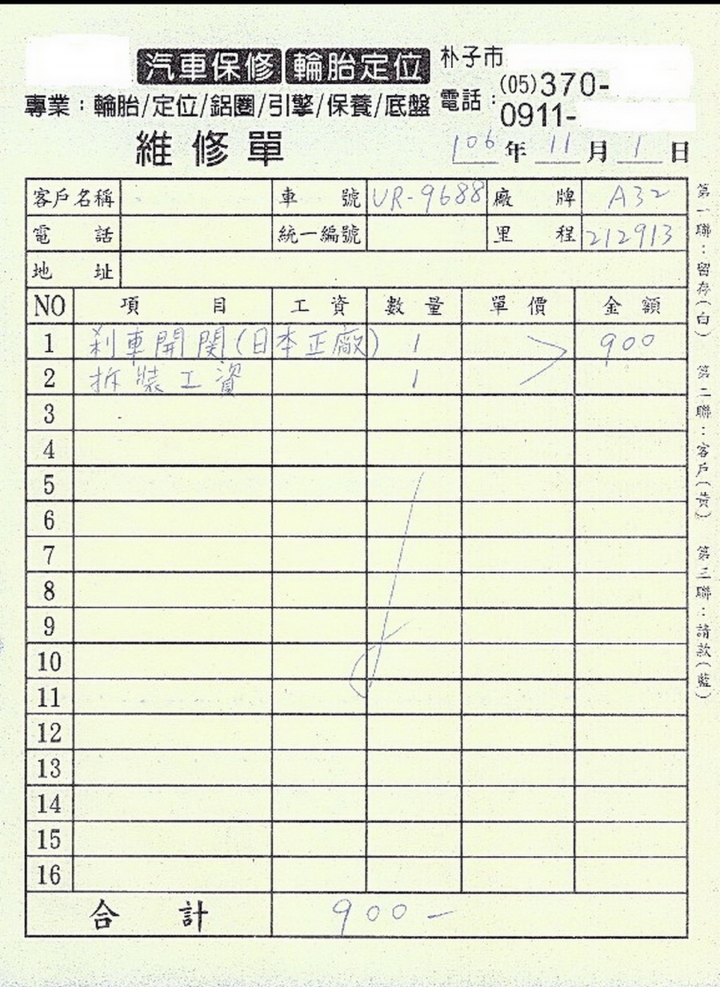 汽車保修 輪胎定位 朴子市
專業：輪胎/定位/鋁圈/引擎/保養/底盤 電話：(05)370-
0911-
維修單 106年11月1日
客戶名稱 車號 UR-9688 廠牌 A32
電話 統一編號 里程 212913
地址
NO 項目 工資 數量 單價 金額
1 刹車開関(日本正廠) 1 900
2 拆裝工資 1
3
4
5
6
7
8
9
10
11
12
13
14
15
16
合計 900-
第一聯：留存(白) 第二聯：客戶(黃) 第三聯：請款(藍)